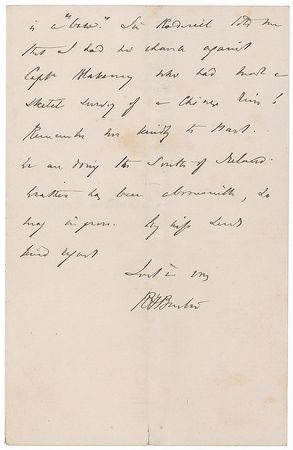 is a "bore." Sir Roderick told me
that I had no chance against
Capt Blakeney who had made a
sketch survey of a Chinese River!
Remember me kindly to Hart.
We are doing the South of Ireland.
Weather has been abominable, so
may improve. My wife sends
kind regards
RFBurton